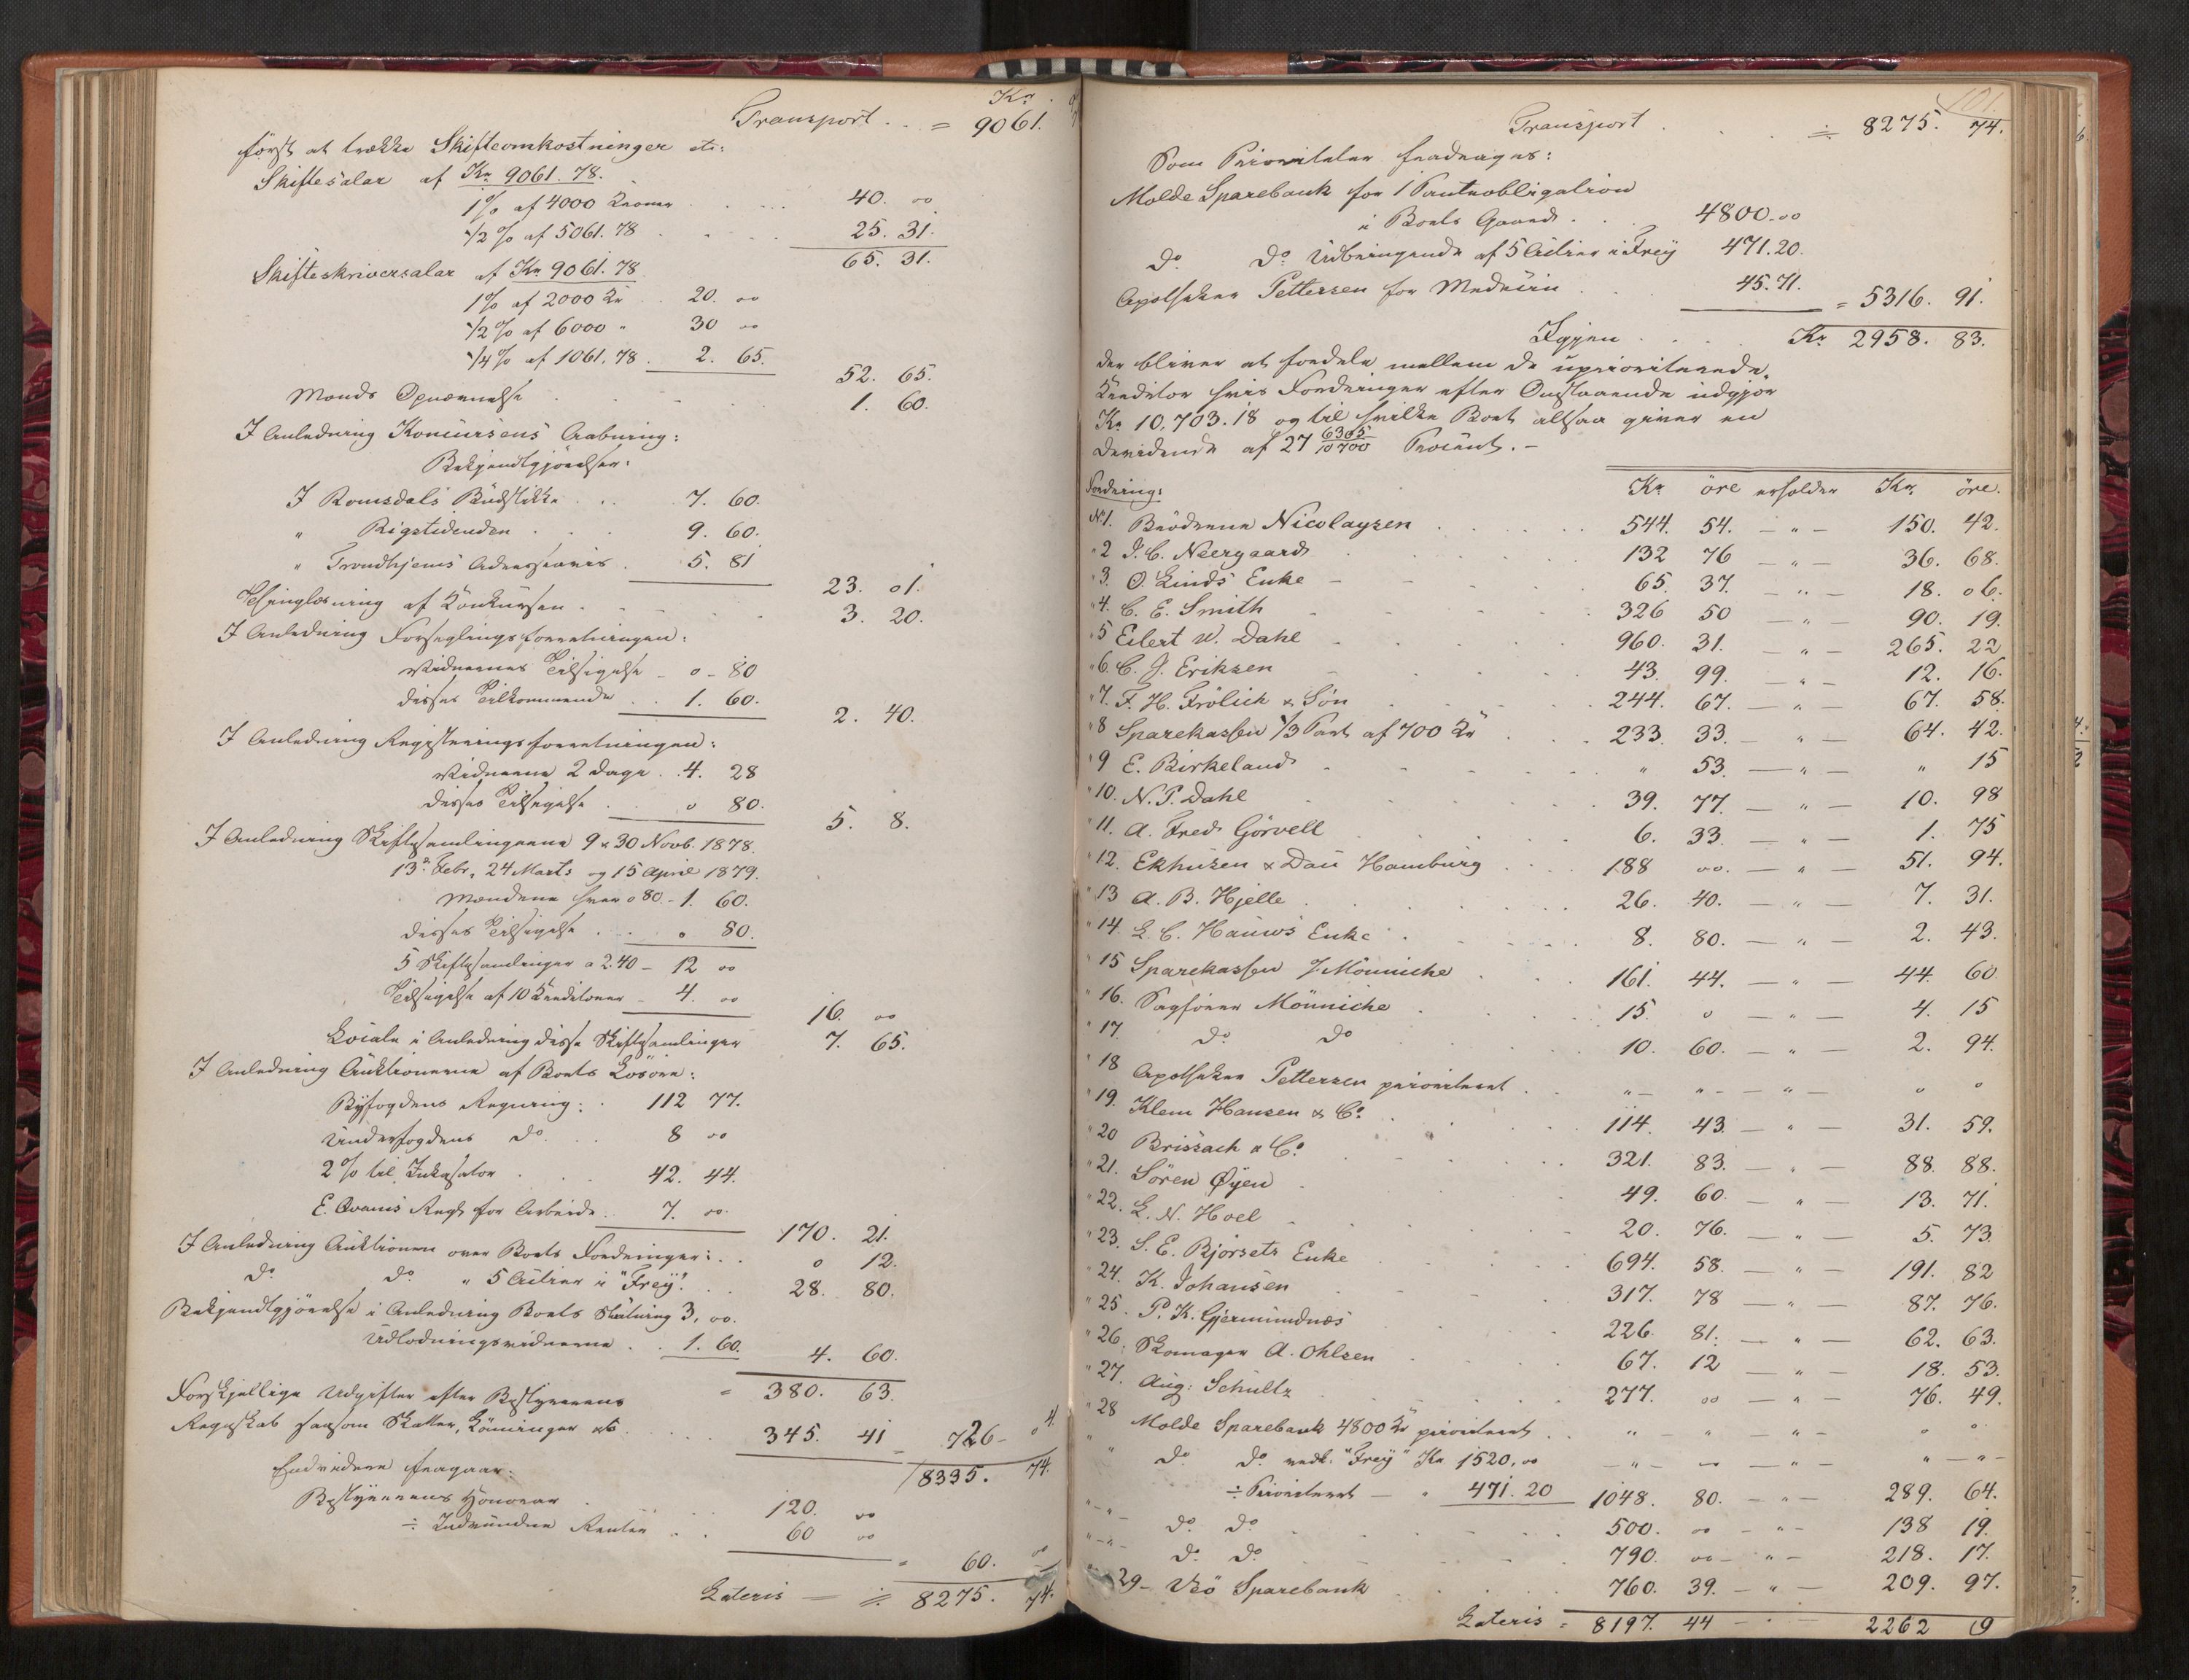 Kr
Transport . . = 9061. 78
først at trække Skifteomkostninger etc:
Skiftesalar af Kr 9061. 78.
1% af 4000 Kroner . . . . 40. 00
1/2 % af 5061. 78 . . . . 25. 31.
65. 31.
Skifteskriversalar af Kr 9061. 78
1% af 2000 Kr . . 20. 00
1/2 % af 6000 " 30 00
1/4 % af 1061. 78 . 2. 65.
52. 65.
Mænds Opnævnelse . . . . 1. 60.
I Anledning Koncursens Aabning:
Bekjendtgjørelser:
I Romsdals Budstikke . . . 7. 60.
" Rigstidenden . . . 9. 60.
" Trondhjems Adresseavis . 5. 81
23. 01.
Thinglæsning af Konkursen . . . . 3. 20.
I Anledning Forseglingsforretningen:
Vidnernes Tilsigelse - 0 - 80
disses Tilkommende . . 1. 60.
2. 40.
I Anledning Registreringsforretningen:
Vidnerne 2 Dage . . 4. 28
disses Tilsigelse . . 0 80.
5. 8.
I Anledning Skiftesamlingerne 9 & 30 Novb. 1878.
13de Febr, 24 Marts og 15 April 1879.
Mændene hver 0 80. - 1. 60.
disses Tilsigelse . . . 0 80.
5 Skiftesamlinger a 2.40 - 12 00
Tilsigelse af 10 Kreditorer - 4. 00
16. 00
Locale i Anledning disse Skiftesamlinger 7. 65.
I Anledning Auktionerne af Boets Løsøre:
Byfogdens Regning: . 112 77.
Underfogdens do. . . 8 00
2% til Inkassator . . . 42. 44.
E. Qvams Regn for Arbeide . . 7. 00.
170. 21.
I Anledning Auktionen over Boets Fordringer: . . 0 12.
do. do. " 5 Actier i "Frey". . . 28. 80.
Bekjendtgjørelse i Anledning Boets Slutning 3, 00.
Udlodningsvidnerne . . 1. 60. 4. 60.
= 380. 63.
Forskjellige Udgifter efter Bestyrerens
Regnskab saasom Skatter, Lønninger etc . . . . 345. 41 - 726 - 04
8335. 74.
Endvidere fragaar:
Bestyrerens Honorar . . . 120. 00
÷ Indvundne Renter . . 60 00
= 60. 00
Lateris — ÷ 8275. 74.
101.
Transport . . . ÷ 8275. 74.
Som Prioriteter fradrages:
Molde Sparebank for 1 Panteobligation
i Boets Gaard . . 4800.00
do. do. Udbringende af 5 Actier i Frey 471.20.
Apotheker Pettersen for Medicin . . . 45.71.
= 5316. 91.
Igjen . . . . Kr 2958. 83.
der bliver at fordele mellem de uprioriterede
Kreditor hvis Fordringer efter Omstaaende udgjør
Kr 10,703.18 og til hvilke Boet altsaa giver en
Devidende af 27 6305/10700 Procent. -
Fordring: Kr öre erholder Kr. öre.
No 1. Brødrene Nicolaysen . . . . 544. 54. - " - 150. 42.
" 2 J. C. Neergaard . . . . 132 76 - " - 36. 68.
" 3. O. Linds Enke - . . . 65. 37. - " - 18. 06.
" 4. C. E. Smith . . . . 326 50 - " - 90. 19.
" 5 Eilert W. Dahl . . . . 960. 31. - " - 265. 22
" 6. C. J. Eriksen . . . . 43. 99. - " - 12. 16.
" 7. F. H. Frölich & Søn . . . . 244. 67. - " - 67. 58.
" 8 Sparekassen 1/3 Part af 700 Kr . . . 233. 33. - " - 64. 42.
" 9 E. Birkeland . . . . " 53. - " - " 15
" 10. N. P. Dahl . . . . 39. 77. - " - 10. 98
" 11. A. Fred. Görvell . . . . 6. 33. - " - 1. 75
" 12. Ekhusen & Dau Hamburg . . . . 188 00. - " - 51. 94.
" 13 A. B. Hjelle . . . . 26. 40. - " - 7. 31.
" 14. L. C. Hauws Enke . . . . 8. 80. - " - 2. 43.
" 15 Sparekassen / Mönniche . . . 161. 44. - " - 44. 60.
" 16. Sagfører Mönniche . . . . 15. 0 - " - 4. 15
" 17. do do . . . . 10. 60. - " - 2. 94.
" 18 Apotheker Pettersen prioriteret . . " - " - - " - 0 0
" 19. Klem Hansen & Co. . . . . 114. 43. - " - 31. 59.
" 20 Brissach & Co. . . . . 321. 83. - " - 88. 88.
" 21. Sören Øyen . . . . 49. 60. - " - 13. 71.
" 22. L. N. Hoel . . . . 20. 76. - " - 5. 73.
" 23. S. E. Bjørsets Enke . . . . 694. 58. - " - 191. 82
" 24. K. Johansen . . . . 317. 78 - " - 87. 76.
" 25. P. K. Gjermundnæs . . . . 226. 81. - " - 62. 63.
" 26. Skomager A. Ohlsen . . . . 67. 12 - " - 18. 53.
" 27. Aug: Schultz . . . . 277. 00 - " - 76. 49.
" 28 Molde Sparebank 4800 Kr prioriteret . . " - " - " - 0 0
" " do do vedk. "Frey" Kr 1520,00 - " - - " - " - " -
÷ Prioriteret — " 471. 20 1048. 80. - " - 289. 64.
" - " - do. do. . . . . 500. 00 - " - 138 19.
" - " - do. do. . . . . 790. 00 - " - 218. 17.
" 29 - Veö Sparebank . . . . 760. 39. - " - 209. 97.
Lateris = 8197. 44 - " - 2262 19